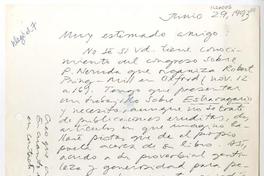 Junio 29, 1993
Muy estimado amigo
No sé si Vd. tiene conoci-
miento del congreso sobre
P. Neruda que organiza Robert
Pring-Mill en Oxford, nov. 12
a 16?. Tengo que presentar
un trabajo sobre Estravagario
y necesito aunque no se trate
de publicaciones eruditas, de
artículos en que
pistas que dé el propio
poeta acerca de su libro. Así,
acudo a su proverbial genti-
leza y generosidad para pe-
Creo que